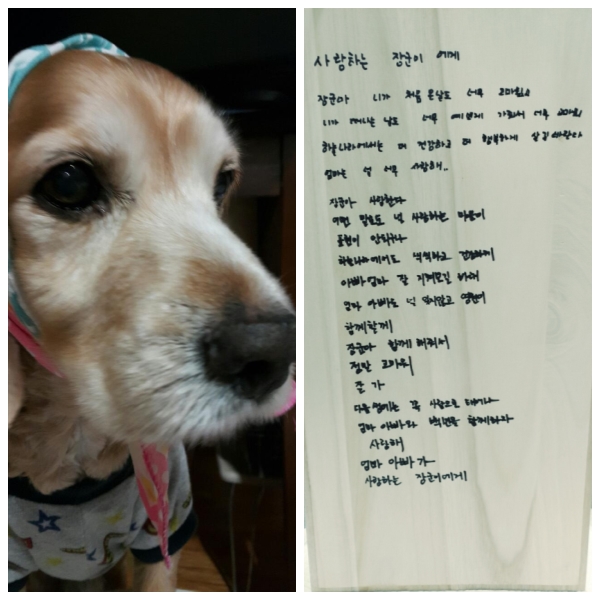 사랑하는 장군이 에게
장군아 니가 처음 온날도 너무 고마웠고
니가 떠나는 날도 너무 예쁘게 가줘서 너무 고마워
하늘나라에서는 더 건강하고 더 행복하게 살길 바란다
엄마는 널 너무 사랑해..
장군아 사랑한다
어떤 말로도 널 사랑하는 마음이
표현이 안되구나
하늘나라에서도 씩씩하고 건강하게
아빠엄마 잘 지켜보길 바래
엄마 아빠도 널 잊지않고 영원히
함께할께
장군아 함께 해줘서
정말 고마워
잘 가
다음생에는 꼭 사람으로 태어나
엄마 아빠와 백년을 함께하자
사랑해
엄마 아빠가
사랑하는 장군이에게